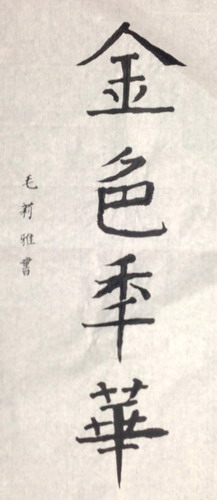 金色秊華
毛莉雅書